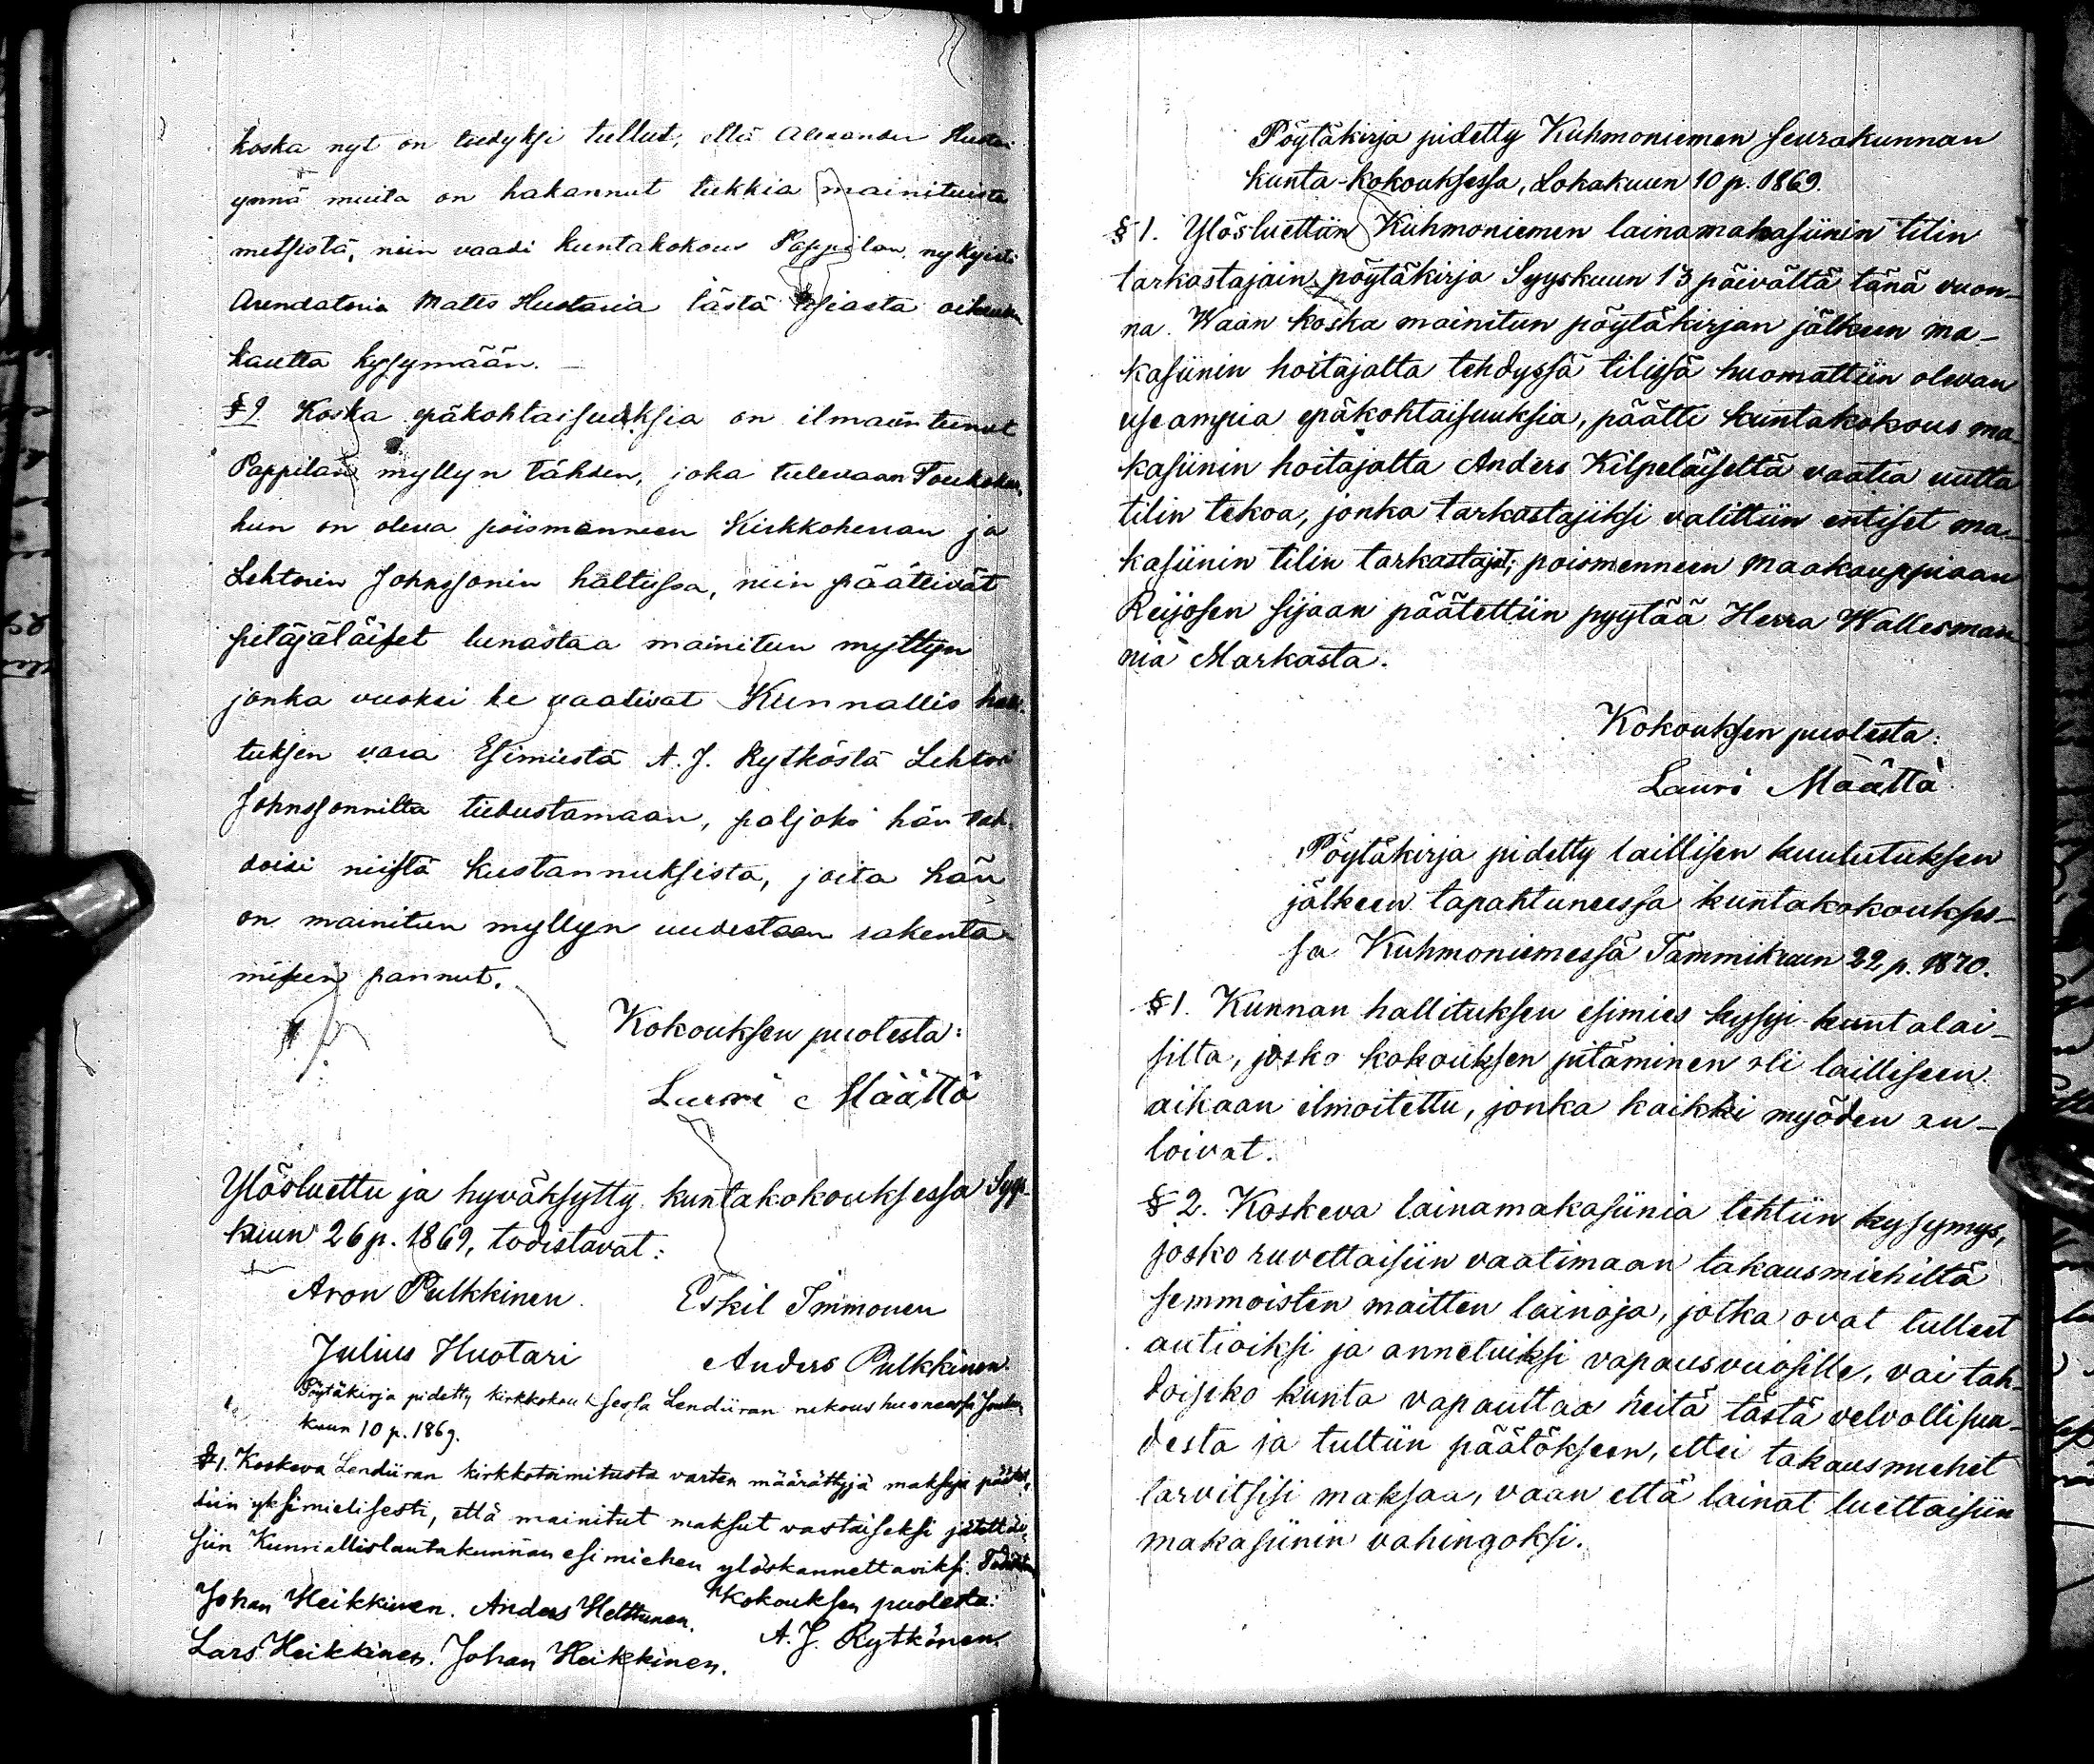 koska nyt on tiedyksi tullut, että Alexander Huotari
ynnä muita on hakannut tukkia mainituista
metsistä, niin vaadi kuntakokous Pappilan nykyisti
Arendatoria Matts Huotaria tästä asiasta oikeuden
kautta kysymään.
§ 9 Koska epäkohtaisuuksia on ilmaün teunut
Pappilan myllyn tähden, joka tulevaan Toukokuu
hun on oleva poismenneen Kirkkoherran ja
Lehtorin Johnssonin haltussa, niin päättivät
pitäjäläiset lunastaa mainitun myllyn
jonka vuoksi he vaativat Kunnallis halli-
tuksen vara Esimiestä A. J. Rytköstä Lehtori
Johnssonnilta tiedustamaan, paljoko hän tah-
doisi niistä kustannuksista, joita hän
on mainitun myllyn uudestaan rakenta-
miseen pannut.
Kokouksen puolesta:
Lauri Määttä
Ylösluettu ja hyväksytty kuntakokouksessa Syys-
kuun 26 p. 1869, todistavat:
Aron Pulkkinen. Eskil Immonen
Julius Huotari Anders Pulkkinen.
Pöytäkirja pidetty kirkkokouksessa Lendiiran rukoushuoneessa Joulu
kuun 10 p. 1869.
§ 1. Koskeva Lendiiran kirkkotoimitusta varten määrättyjä maksuja päätet-
tiin yksimielisesti, että mainitut maksut vastaiseksi jätettäi-
siin Kunnallislautakunnan esimiehen ylöskannettaviksi. Todistaa
Kokouksen puolesta:
Johan Heikkinen. Anders Helttunen. A. J. Rytkönen.
Lars Heikkinen. Johan Heikkinen.
Pöytäkirja pidetty Kuhmoniemen seurakunnan
kunta-kokouksessa, Lokakuun 10 p. 1869.
§ 1. Ylösluettiin Kuhmoniemen lainamakasiinin tilin
tarkastajain pöytäkirja Syyskuun 13 päivältä tänä vuon-
na. Waan koska mainitun pöytäkirjan jälkeen ma-
kasiinin hoitajalta tehdyssä tilissä huomattiin olevan
useampia epäkohtaisuuksia, päätti kuntakokous ma-
kasiinin hoitajalta Anders Kilpeläiseltä vaatia uutta
tilin tekoa, jonka tarkastajiksi valittiin entiset ma-
kasiinin tilin tarkastajat; poismenneen maakauppiaan
Reijosen sijaan päätettiin pyytää Herra Wallesman-
nia Markasta.
Kokouksen puolesta:
Lauri Määttä
Pöytäkirja pidetty laillisen kuulutuksen
jälkeen tapahtuneessa kuntakokoukses-
sa Kuhmoniemessä Tammikuun 22 p. 1870.
§ 1. Kunnan hallituksen esimies kysyi kuntalai-
silta, josko kokouksen pitäminen oli lailliseen
aikaan ilmoitettu, jonka kaikki myöden an-
toivat.
§ 2. Koskeva lainamakasiinia tehtiin kysymys,
josko ruvettaisiin vaatimaan takausmiehiltä
semmoisten maitten lainoja, jotka ovat tulleet
autioiksi ja annetuiksi vapausvuosille, vai tah-
doiseko kunta vapauttaa heitä tästä velvollisuu-
desta ja tultiin päätökseen, ettei takausmiehet
tarvitsisi maksaa, vaan että lainat luettaisiin
makasiinin vahingoksi.